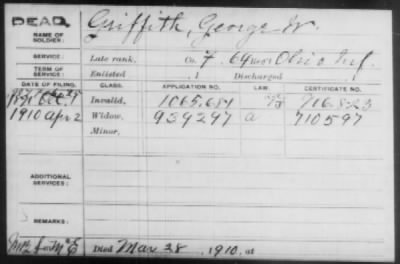 DEAD
NAME OF SOLDIER: Griffith, George W.
SERVICE: Late rank, Co. F 69 Ohio Inf.
TERM OF SERVICE: Enlisted , 1 Discharged
DATE OF FILING. CLASS. APPLICATION NO. LAW. CERTIFICATE NO.
Invalid, 1065,684 716.823
1910 Apr 2 Widow, 939297 a 710597
Minor,
ADDITIONAL SERVICES:
REMARKS:
Died Mar 28, 1910, at